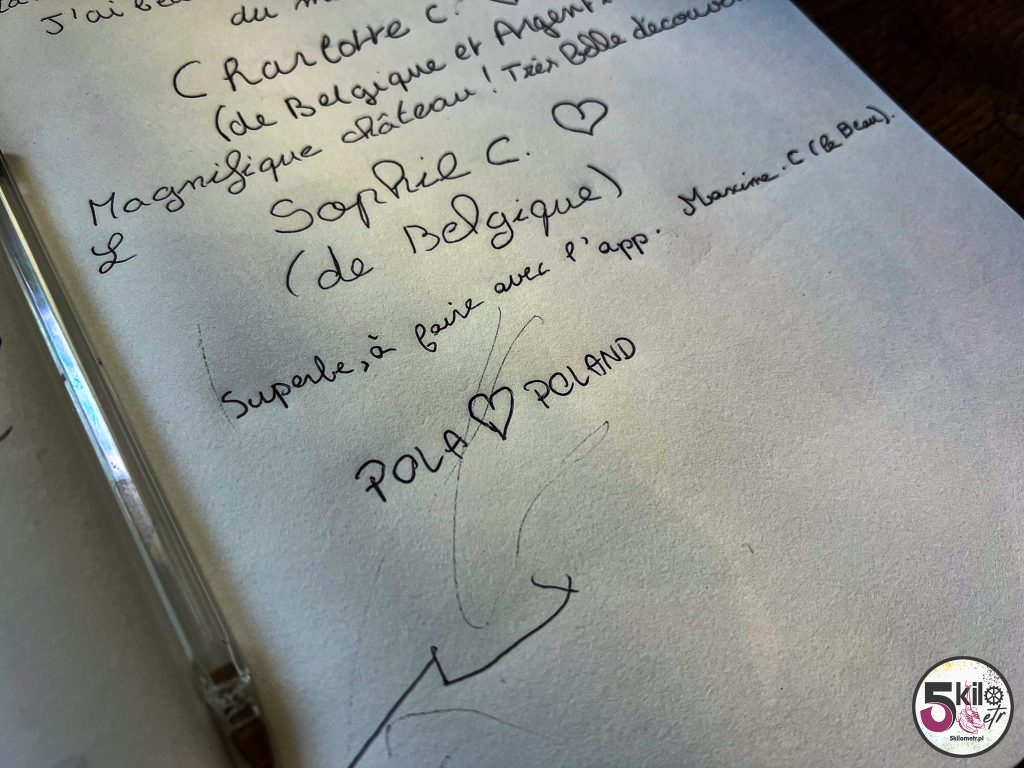 J'ai
du
Charlotte C.
(de Belgique et Argent
Magnifique château! Très Belle découver
Sophie C.
(de Belgique)
Superbe, à faire avec l'app. Maxime. C (le Beau).
POLA POLAND
5kil
metr
5kilometr.pl